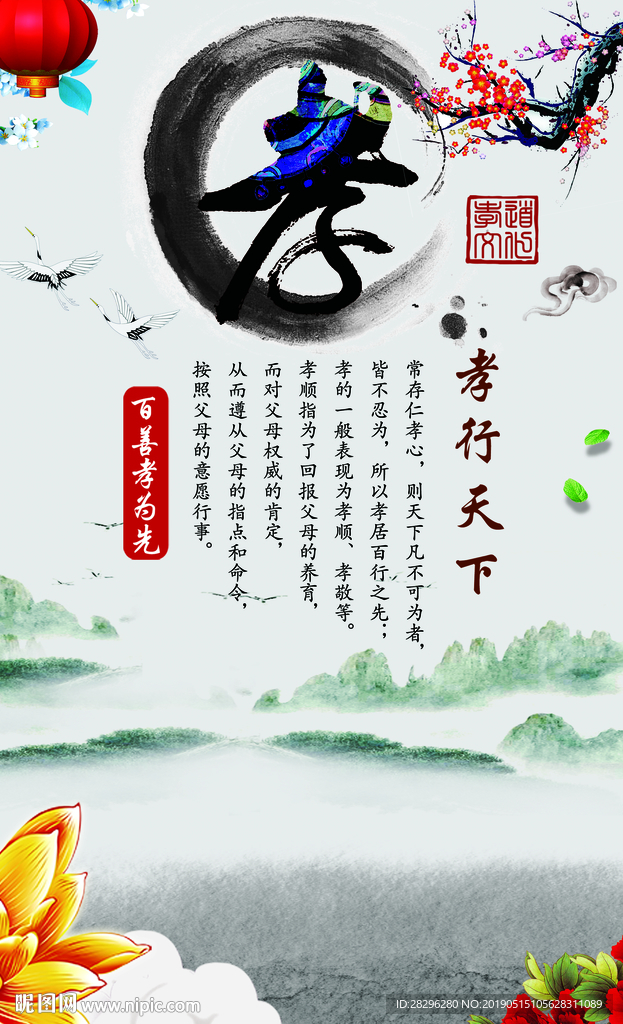 孝
道孝
化文
孝行天下
常存仁孝心，则天下凡不可为者，
皆不忍为，所以孝居百行之先；，
孝的一般表现为孝顺、孝敬等。
孝顺指为了回报父母的养育，
而对父母权威的肯定，
从而遵从父母的指点和命令，
按照父母的意愿行事。
百善孝为先
昵图网 www.nipic.com
ID:28296280 NO:20190515105628311089